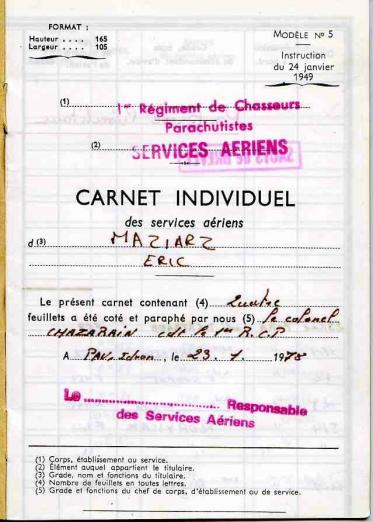 FORMAT :
Hauteur .... 165
Largeur .... 105
MODÈLE Nº 5
Instruction
du 24 janvier
1949
(1) 1er Régiment de Chasseurs
Parachutistes
(2) SERVICES AERIENS
CARNET INDIVIDUEL
des services aériens
d (3) MAZIARZ
ERIC
Le présent carnet contenant (4) Quatre
feuillets a été coté et paraphé par nous (5) le colonel
CHAZARAIN cdt le 1er R.C.P
A PAU, Idron, le 23. 1. 1978
Le .................... Responsable
des Services Aériens
(1) Corps, établissement ou service.
(2) Élément auquel appartient le titulaire.
(3) Grade, nom et fonctions du titulaire.
(4) Nombre de feuillets en toutes lettres.
(5) Grade et fonctions du chef de corps, d'établissement ou de service.